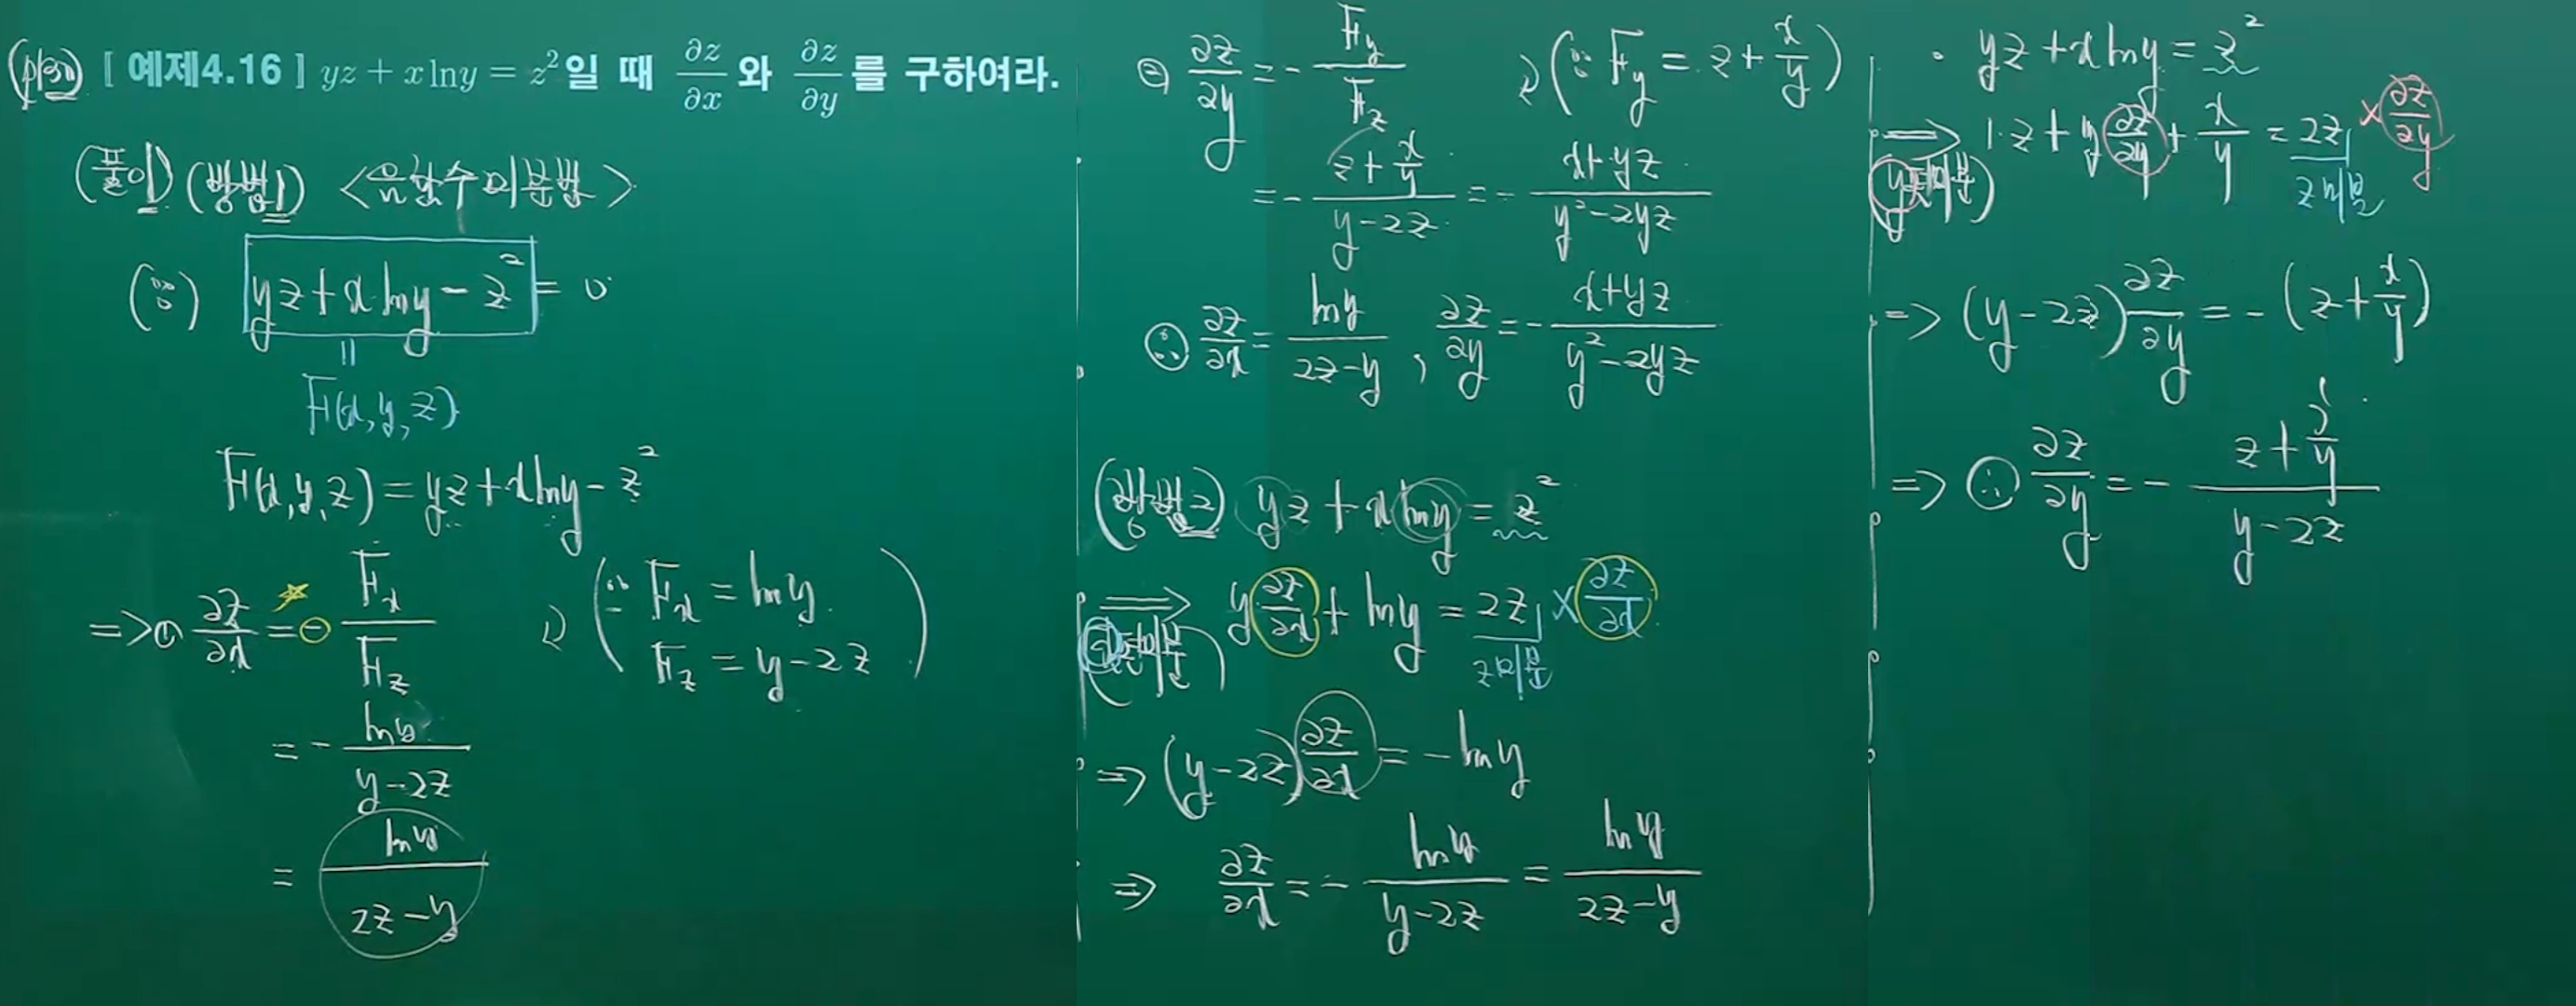 (p130) [ 예제4.16 ] yz + x lny = z² 일 때 ∂z/∂x 와 ∂z/∂y 를 구하여라.
(풀이) (방법1) <음함수미분법>
(∵) yz + x lny - z² = 0
||
F(x, y, z)
F(x, y, z) = yz + x lny - z²
=> ① ∂z/∂x = - Fx/Fz (∵ Fx = lny
Fz = y - 2z)
= - lny/(y - 2z)
= lny/(2z - y)
② ∂z/∂y = - Fy/Fz (∵ Fy = z + x/y)
= - (z + x/y)/(y - 2z) = - (x + yz)/(y² - 2yz)
∴ ∂z/∂x = lny/(2z - y) , ∂z/∂y = - (x + yz)/(y² - 2yz)
(방법2) yz + x lny = z²
=> y ∂z/∂x + lny = 2z × ∂z/∂x
(x로미분) z미분
=> (y - 2z) ∂z/∂x = - lny
=> ∂z/∂x = - lny/(y - 2z) = lny/(2z - y)
· yz + x lny = z²
=> 1·z + y ∂z/∂y + x/y = 2z × ∂z/∂y
(y로미분) z미분
=> (y - 2z) ∂z/∂y = - (z + x/y)
=> ∴ ∂z/∂y = - (z + x/y)/(y - 2z)